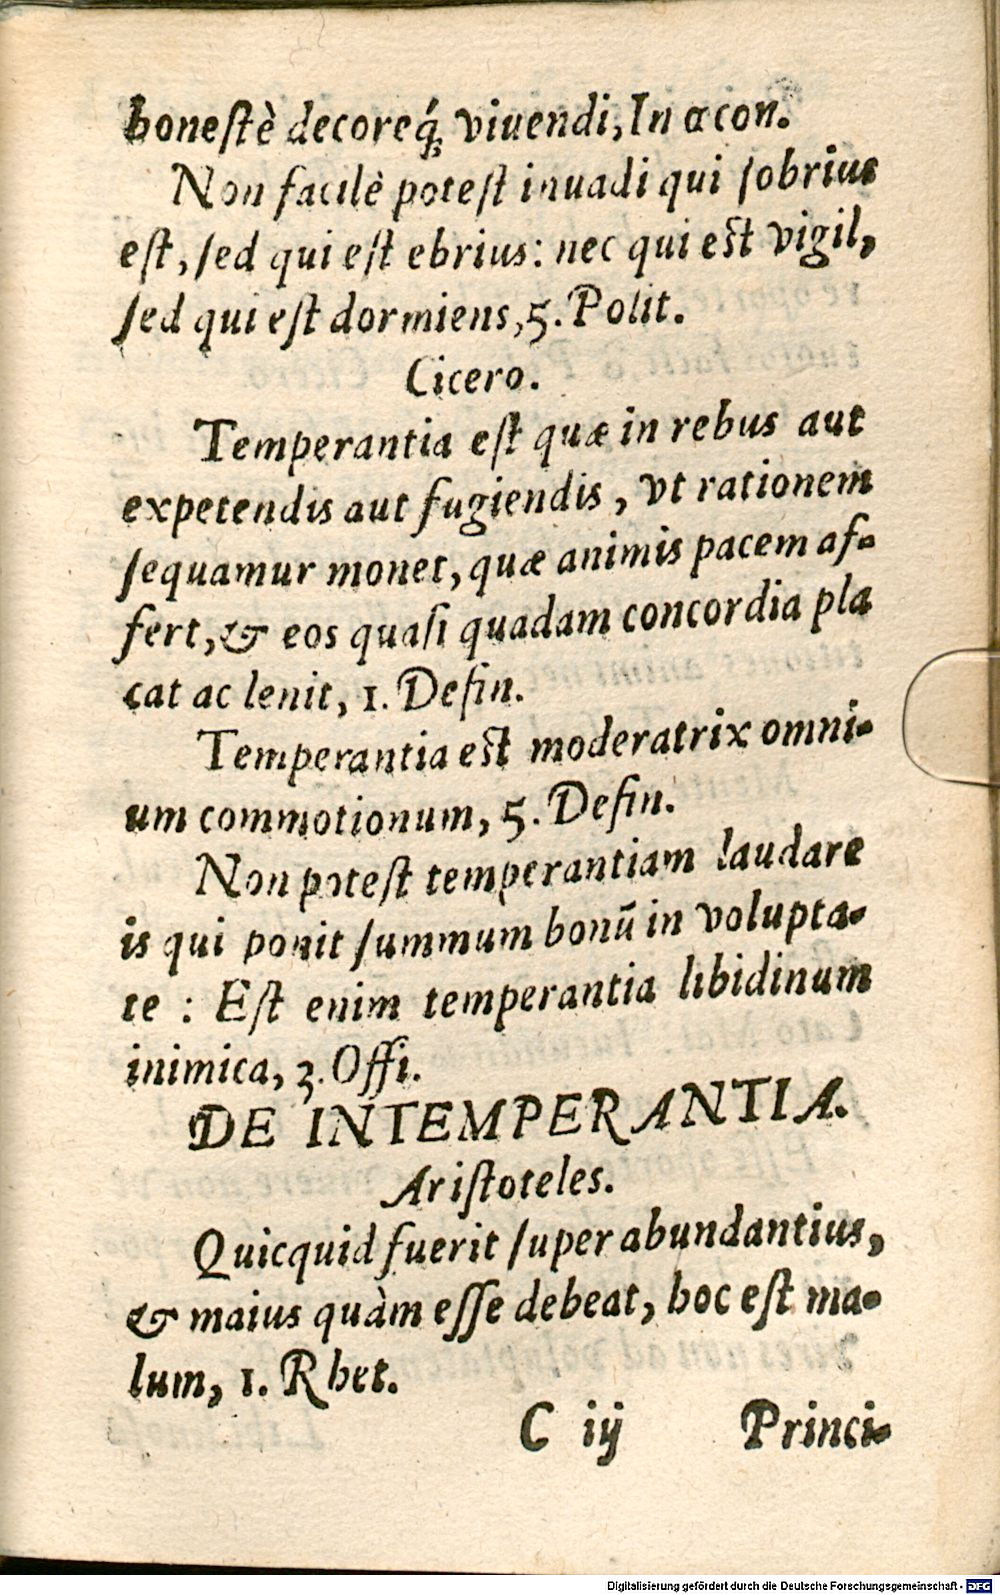 honeſtè decoreq́; viuendi, In œcon.
Non facilè poteſt inuadi qui ſobrius
eſt, ſed qui eſt ebrius: nec qui eſt vigil,
ſed qui eſt dormiens, 5. Polit.
Cicero.
Temperantia eſt quæ in rebus aut
expetendis aut fugiendis, vt rationem
ſequamur monet, quæ animis pacem af-
fert, & eos quaſi quadam concordia pla
cat ac lenit, 1. Defin.
Temperantia eſt moderatrix omni-
um commotionum, 5. Defin.
Non poteſt temperantiam laudare
is qui ponit ſummum bonū in volupta-
te : Eſt enim temperantia libidinum
inimica, 3. Offi.
DE INTEMPERANTIA.
Ariſtoteles.
Quicquid fuerit ſuperabundantius,
& maius quàm eſſe debeat, hoc eſt ma-
lum, 1. Rhet.
C iij Princi-
Digitalisierung gefördert durch die Deutsche Forschungsgemeinschaft - DFG